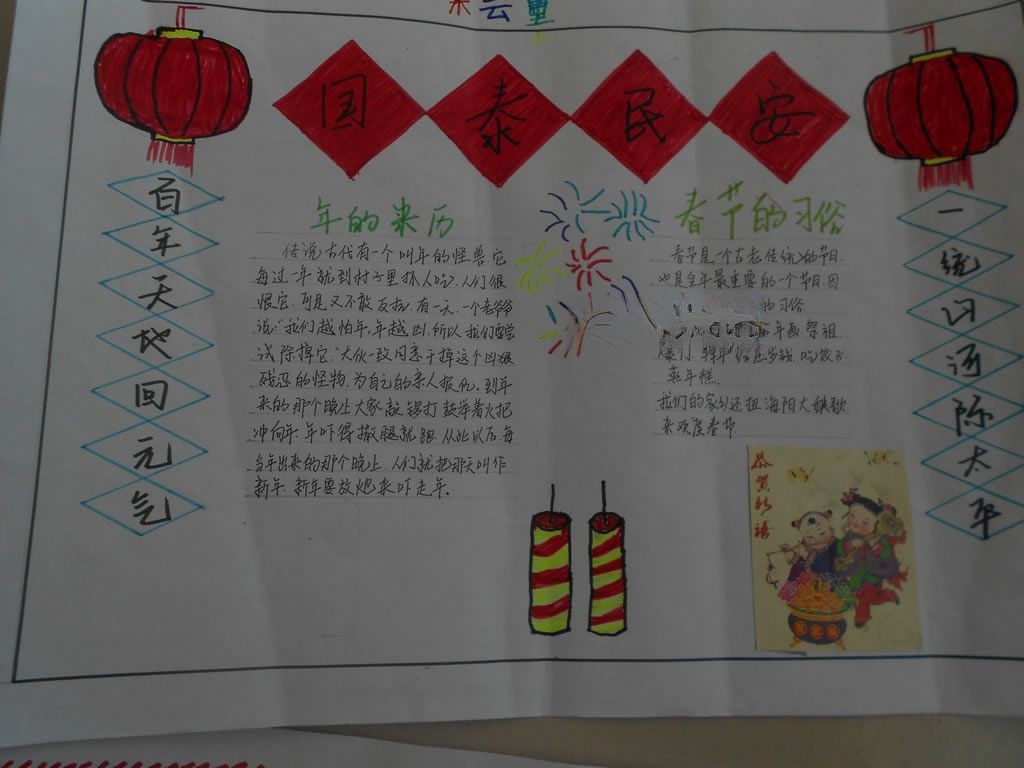 云
国泰民安
百年天地回元气
年的来历
传说古代有一个叫年的怪兽它
每过一年就到村子里抓人吃,人们很
恨它,可是又不敢反抗,有一天,一个老爷爷
说:"我们越怕年,年越凶,所以我们要尝
试除掉它."大伙一致同意干掉这个凶狠
残忍的怪物,为自己的亲人报仇.到年
来的那个晚上大家敲锣打鼓举着火把
冲向年.年吓得撒腿就跑从此以后,每
当年出来的那个晚上,人们就把那天叫作
新年.新年要放炮来吓走年.
春节的习俗
春节是一个古老传统的节日,
也是全年最重要的一个节日,因
的习俗
年画祭祖
压岁钱 吃饺子
蒸年糕.
我们的家乡还扭海阳大秧歌
来欢度春节
一统闪语际太平
恭贺新禧